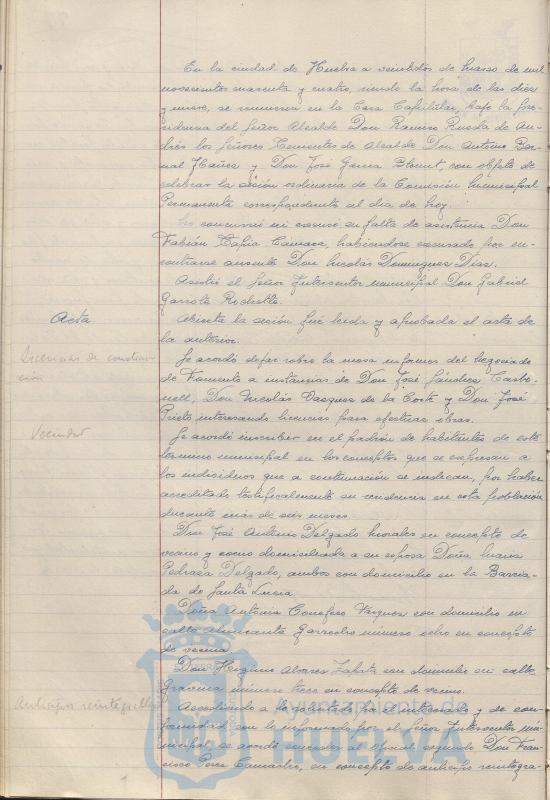 En la ciudad de Huelva a veintidos de Marzo de mil
novecientos cuarenta y cuatro, siendo la hora de las diez
y nueve, se reunieron en la Casa Capitular, bajo la Pre-
sidencia del Señor Alcalde Don Ramiro Rueda de An-
drés los Señores Tenientes de Alcalde Don Antonio Ber-
nal Ibañez y Don José Garcia, con objeto de
celebrar la sesión ordinaria de la Comisión Municipal
Permanente correspondiente al dia de hoy.
No concurrió ni excusó su falta de asistencia Don
Fabián Tapia Camacea, habiendose excusado por en-
contrarse ausente Don Nicolás Dominguez Diaz.
Asistió el Señor Interventor municipal Don Gabriel
Garrote Rodestta.
Acta
Abierta la sesión fué leida y aprobada el acta de
la anterior.
Licencias de construc
ción
Se acordó dejar sobre la mesa informes del negociado
de Fomento a instancias de Don José Sánchez Carbo-
nell, Don Nicolás Vazquez de la Corte y Don José
Prieto interesando licencias para efectuar obras.
Vecindad
Se acordó inscribir en el padrón de habitantes de este
término municipal en los conceptos que se expresan a
los individuos que a continuación se indican, por haber
acreditado testificalmente su residencia en esta población
durante mas de seis meses.
Don José Antonio Delgado Morales en concepto de
vecino y como domiciliada a su esposa Doña Maria
Pedraza Delgado, ambos con domicilio en la Barria-
da de Santa Lucia
Doña Antonia Conejero Vazquez con domicilio en
calle Almirante Garrocho número ocho en concepto
de vecina.
Don Higinio Alvarez Zapata con domicilio en calle
Gravina numero trece en concepto de vecino.
Anticipos reintegrables
Accediendo a lo solicitado por el interesado y de con-
formidad con lo informado por el Señor Interventor mu-
nicipal, se acordó conceder al oficial segundo Don Fran-
cisco Perez Camacho, en concepto de anticipo reintegra-
Ayuntamiento de
HUELVA